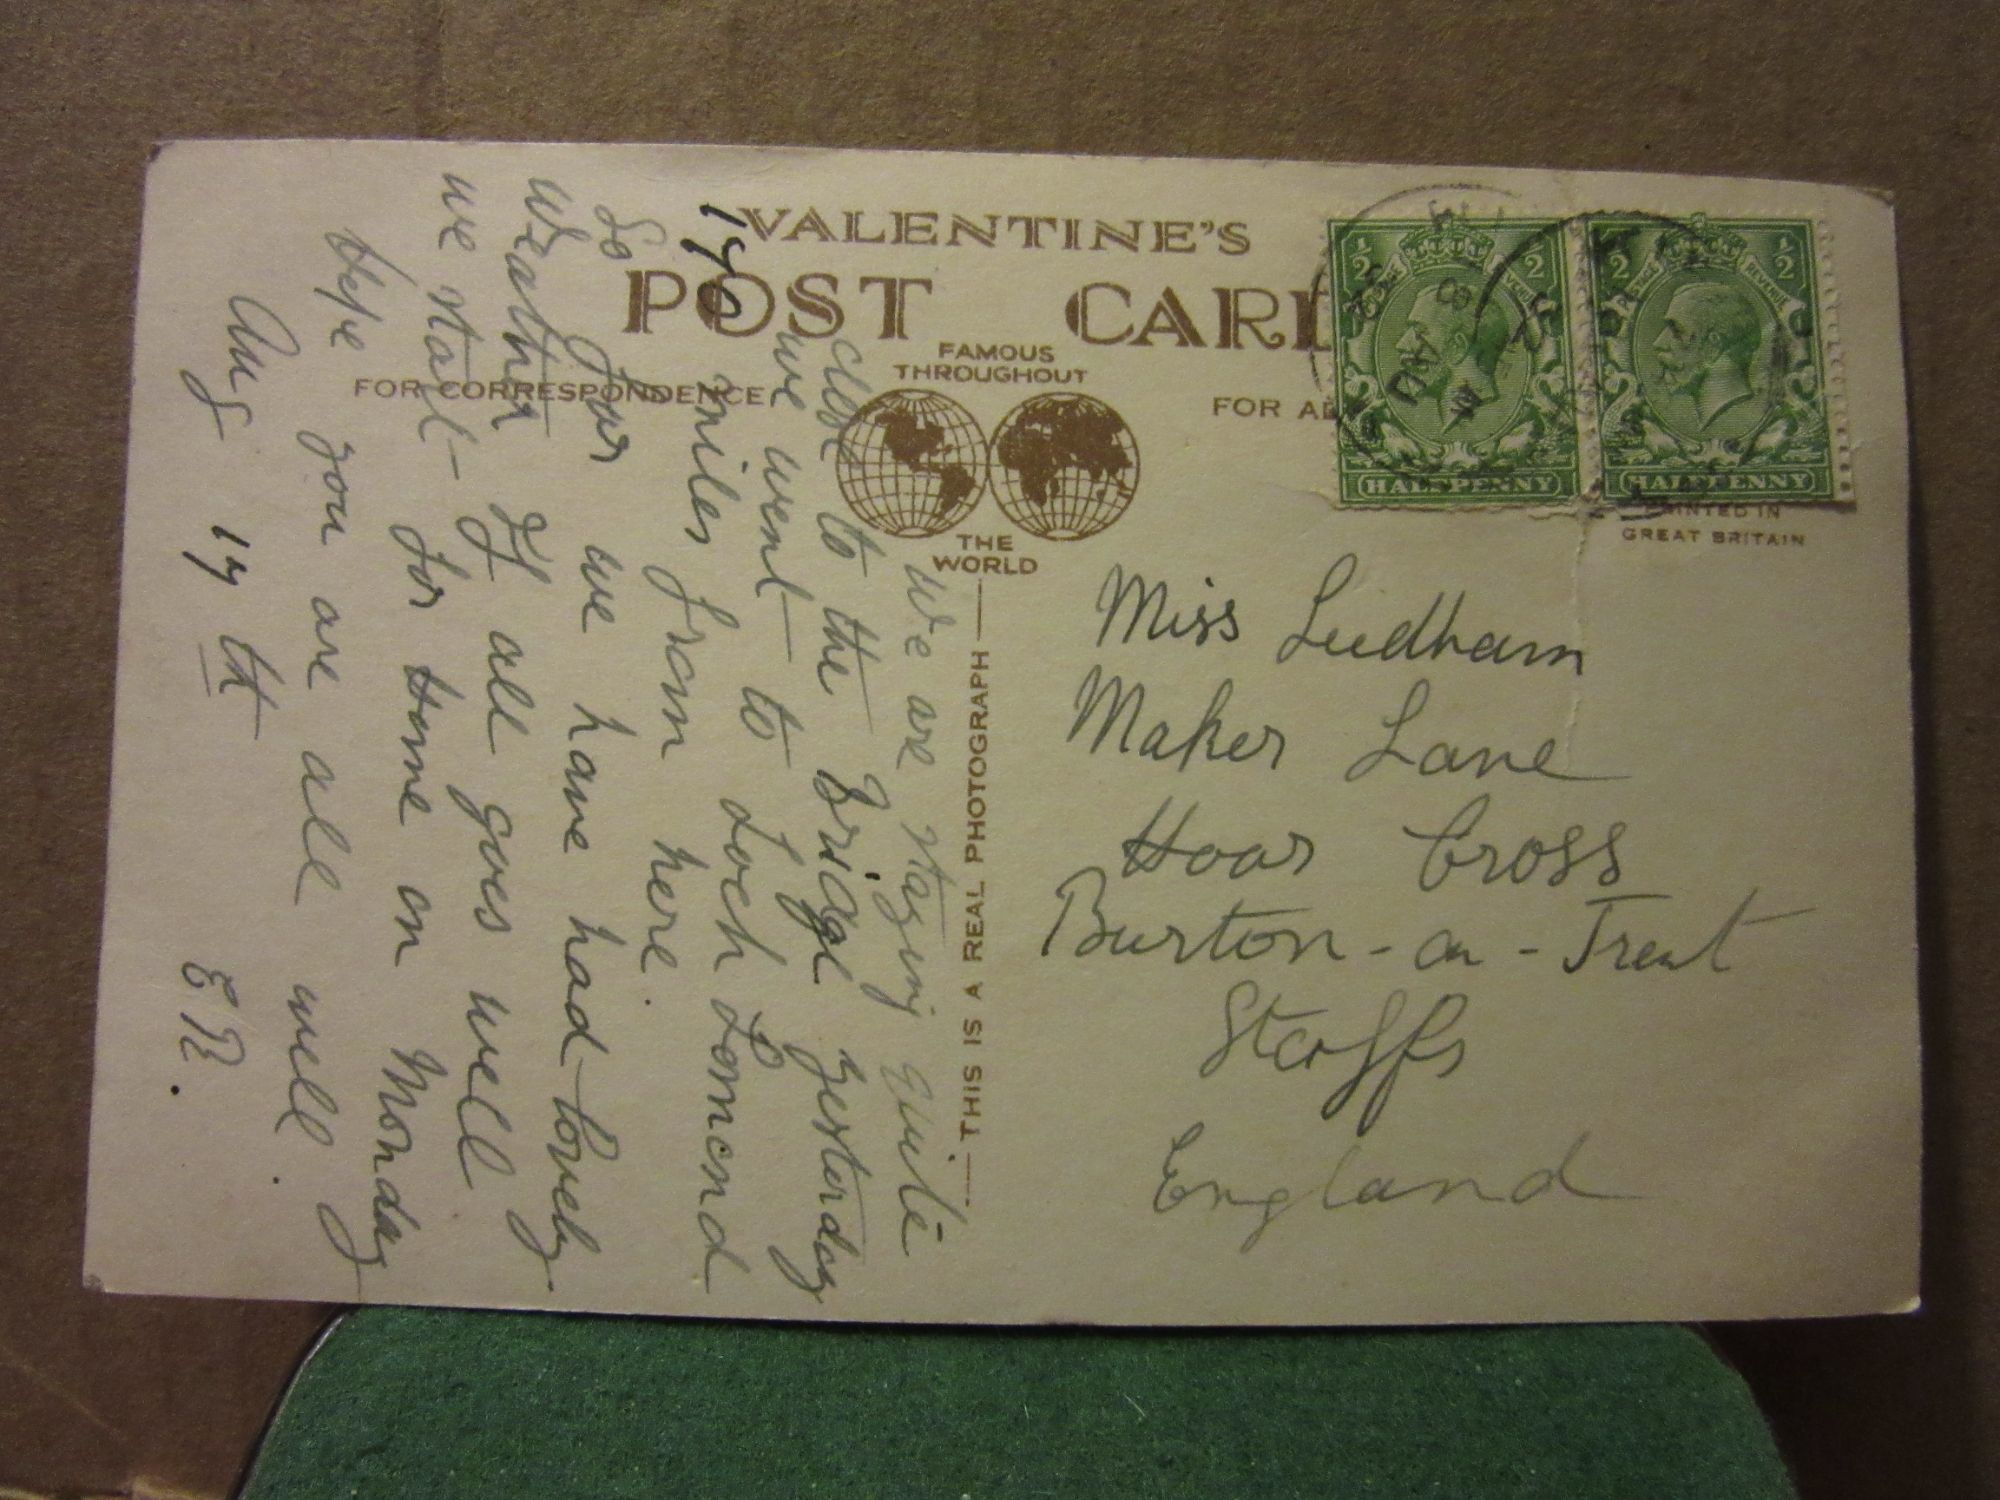 VALENTINE'S
POST CARD
FAMOUS
THROUGHOUT
THE
WORLD
FOR CORRESPONDENCE
FOR AD
HALFPENNY
HALFPENNY
PRINTED IN
GREAT BRITAIN
THIS IS A REAL PHOTOGRAPH
We are staying quite
close to the Bridge yesterday
we went to Loch Lomond
miles from here.
So far we have had lovely
weather If all goes well
we start for Home on Monday
Hope you are all well
Aug 17th E R.
Miss Ludham
Maker Lane
Hoar Cross
Burton-on-Trent
Staffs
England